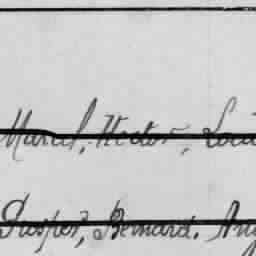 Marcel, Hector, Loui
Gasper, Bernard, Aug